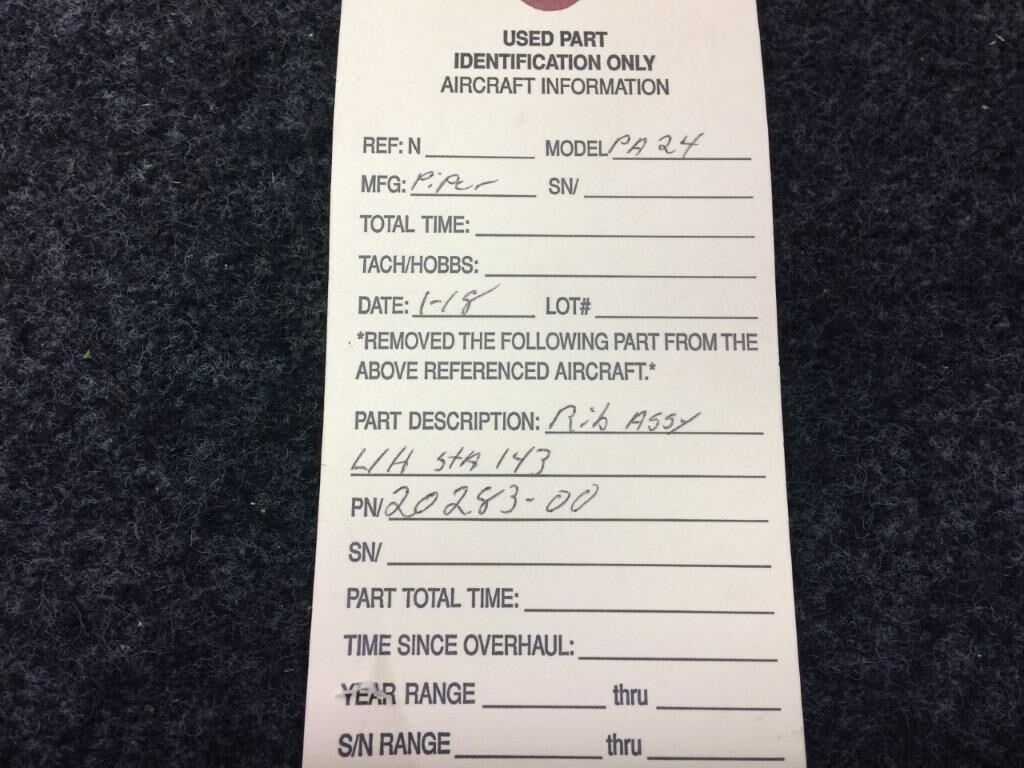 USED PART
IDENTIFICATION ONLY
AIRCRAFT INFORMATION
REF: N MODEL PA 24
MFG: Piper SN/
TOTAL TIME:
TACH/HOBBS:
DATE: 1-18 LOT#
*REMOVED THE FOLLOWING PART FROM THE
ABOVE REFERENCED AIRCRAFT.*
PART DESCRIPTION: Rib ASSY
L/H StA 143
PN/ 20283-00
SN/
PART TOTAL TIME:
TIME SINCE OVERHAUL:
YEAR RANGE thru
S/N RANGE thru